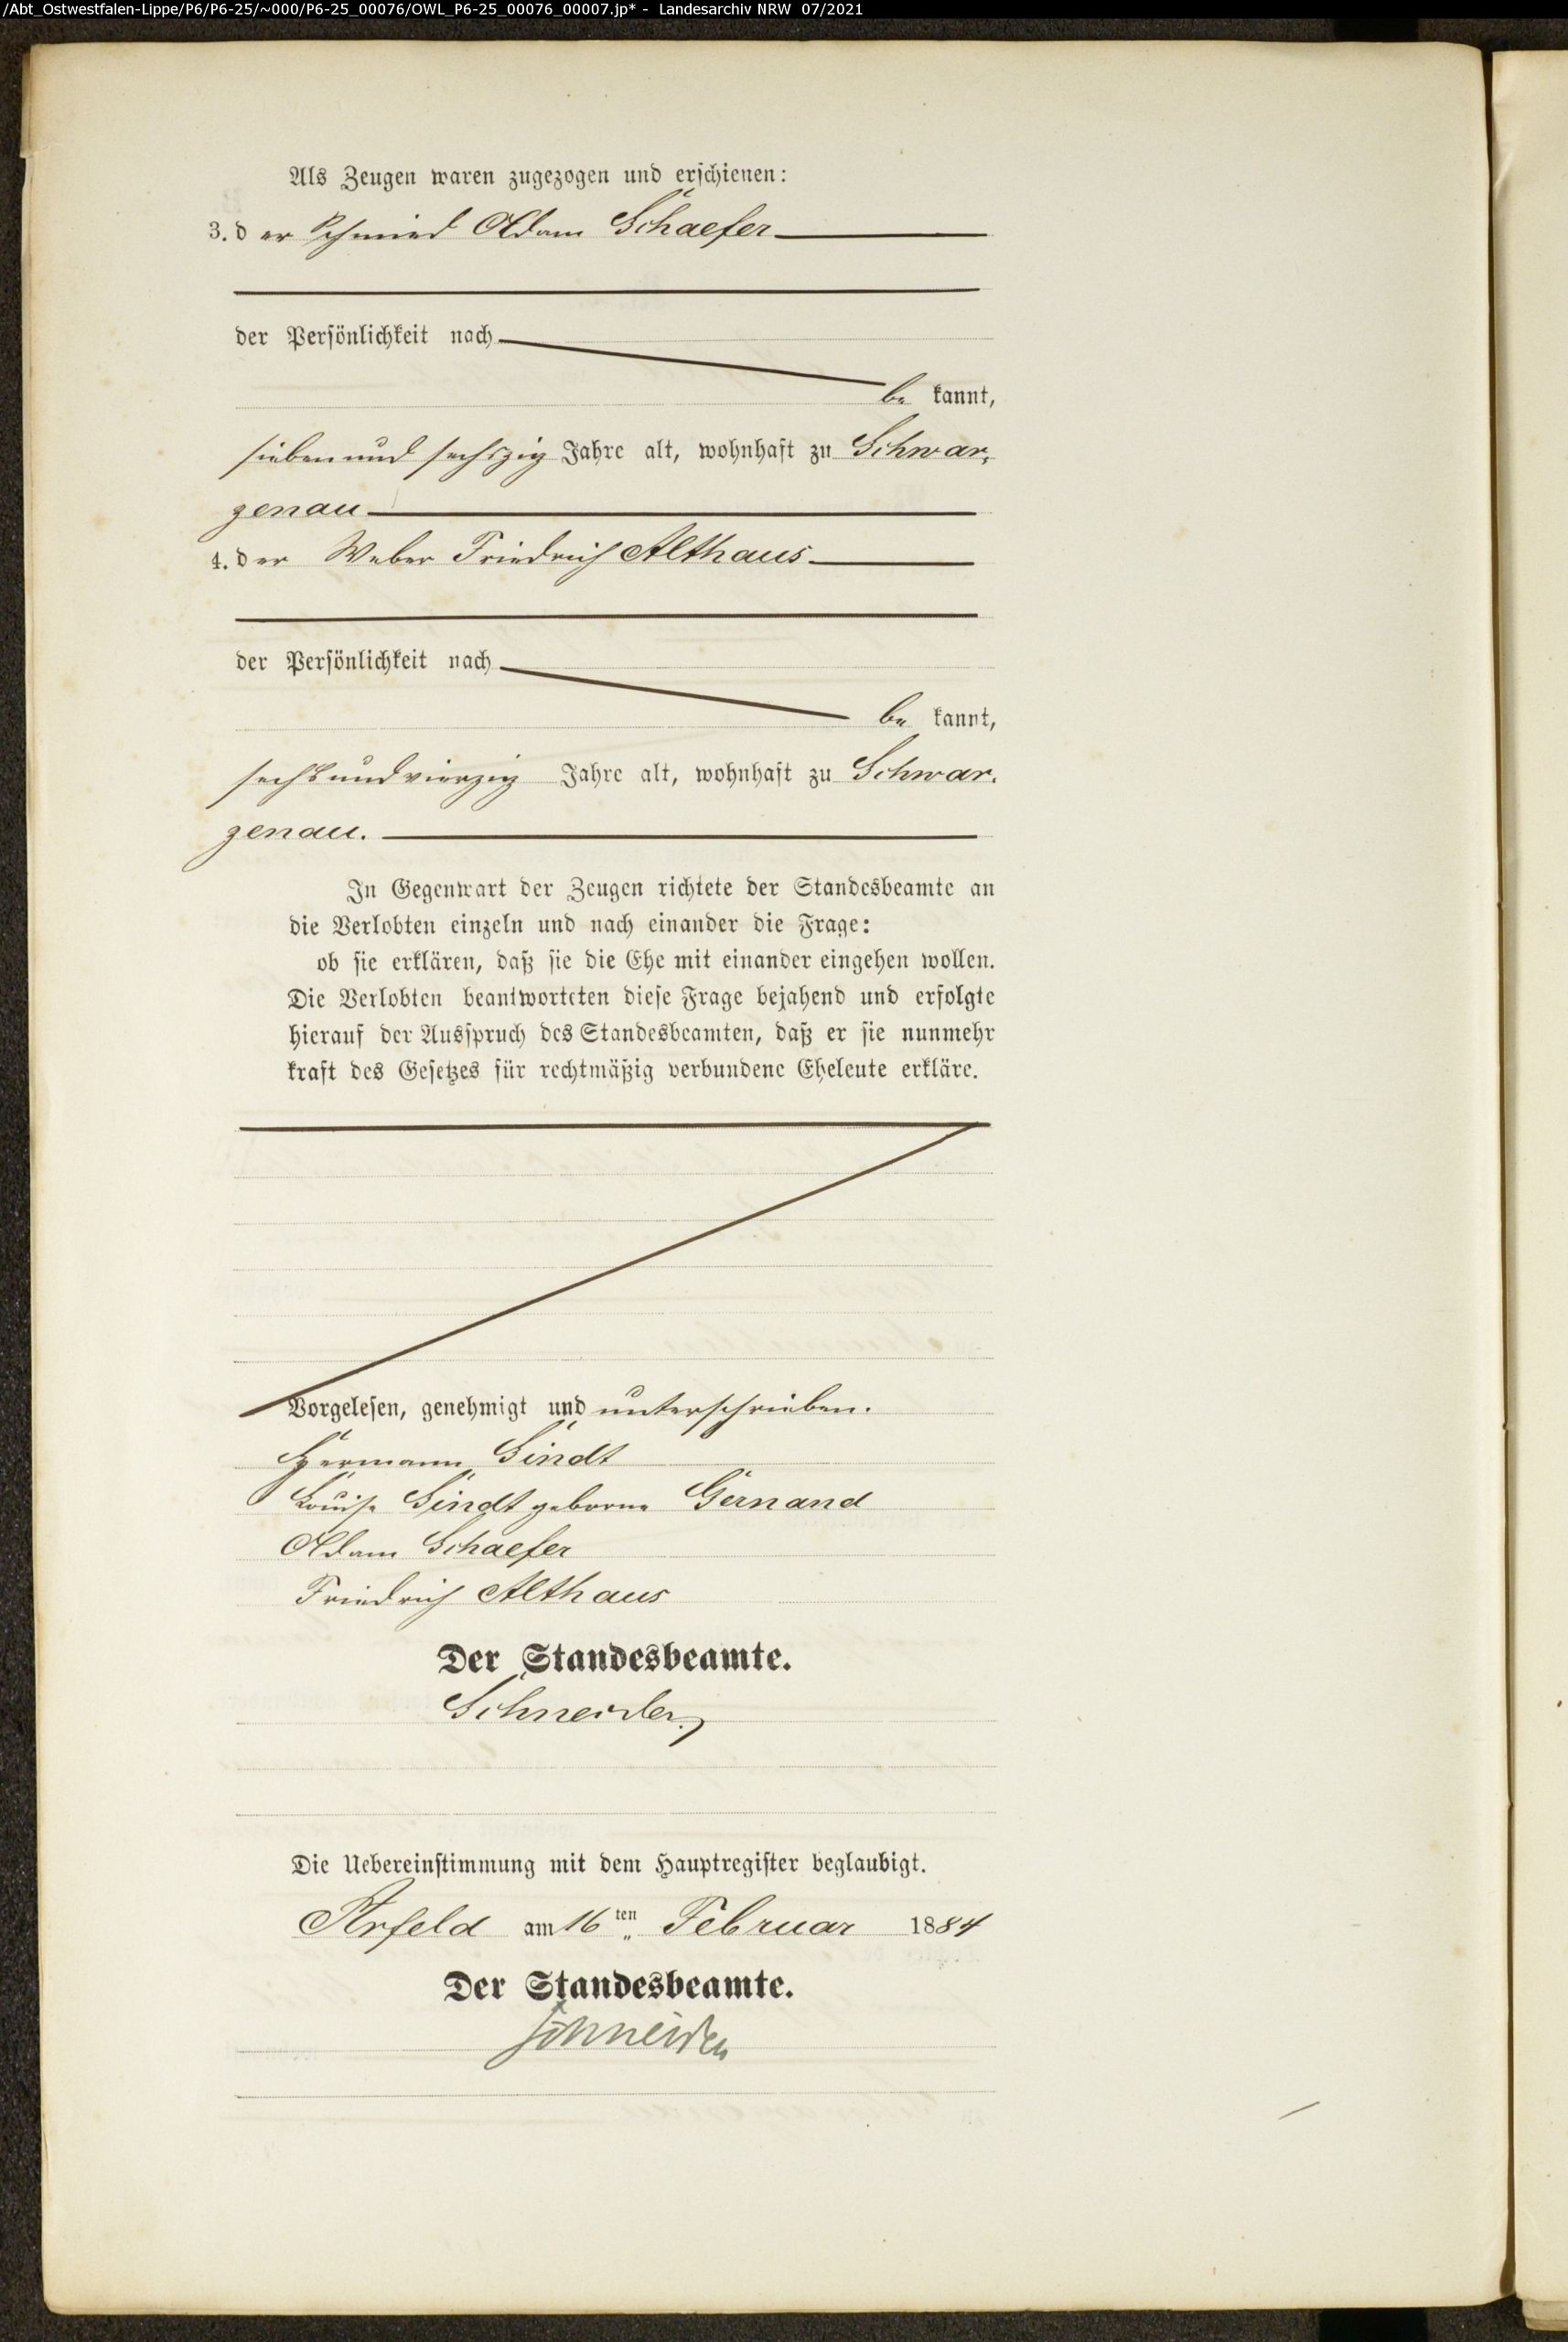 /Abt_Ostwestfalen-Lippe/P6/P6-25/~000/P6-25_00076/OWL_P6-25_00076_00007.jp* - Landesarchiv NRW 07/2021
Als Zeugen waren zugezogen und erschienen:
3. d er Schmied Adam Schaefer
der Persönlichkeit nach
be kannt,
siebenundsechszig Jahre alt, wohnhaft zu Schwar,
zenau
4. der Weber Friedrich Althaus
der Persönlichkeit nach
be kannt,
sechsundvierzig Jahre alt, wohnhaft zu Schwar.
zenau.
In Gegenwart der Zeugen richtete der Standesbeamte an
die Verlobten einzeln und nach einander die Frage:
ob sie erklären, daß sie die Ehe mit einander eingehen wollen.
Die Verlobten beantworteten diese Frage bejahend und erfolgte
hierauf der Ausspruch des Standesbeamten, daß er sie nunmehr
kraft des Gesetzes für rechtmäßig verbundene Eheleute erkläre.
Vorgelesen, genehmigt und unterschrieben.
Hermann Sindt
Louise Sindt geborne Gernand
Adam Schaefer
Friedrich Althaus
Der Standesbeamte.
Schneider
Die Uebereinstimmung mit dem Hauptregister beglaubigt.
Arfeld am 16ten Februar 1884
Der Standesbeamte.
Schneider